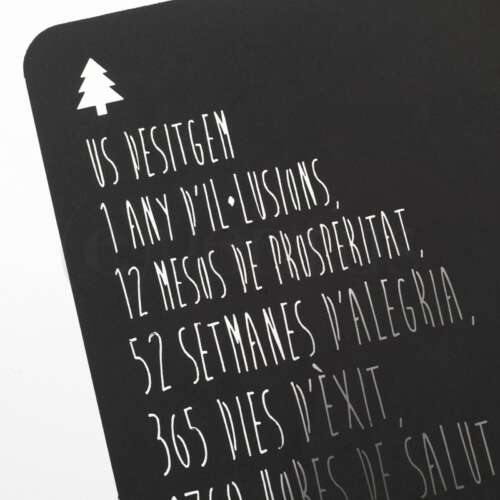 US DESITGEM
1 ANY D'IL·LUSIONS,
12 MESOS DE PROSPERITAT,
52 SETMANES D'ALEGRIA,
365 DIES D'ÈXIT,
8760 HORES DE SALUT